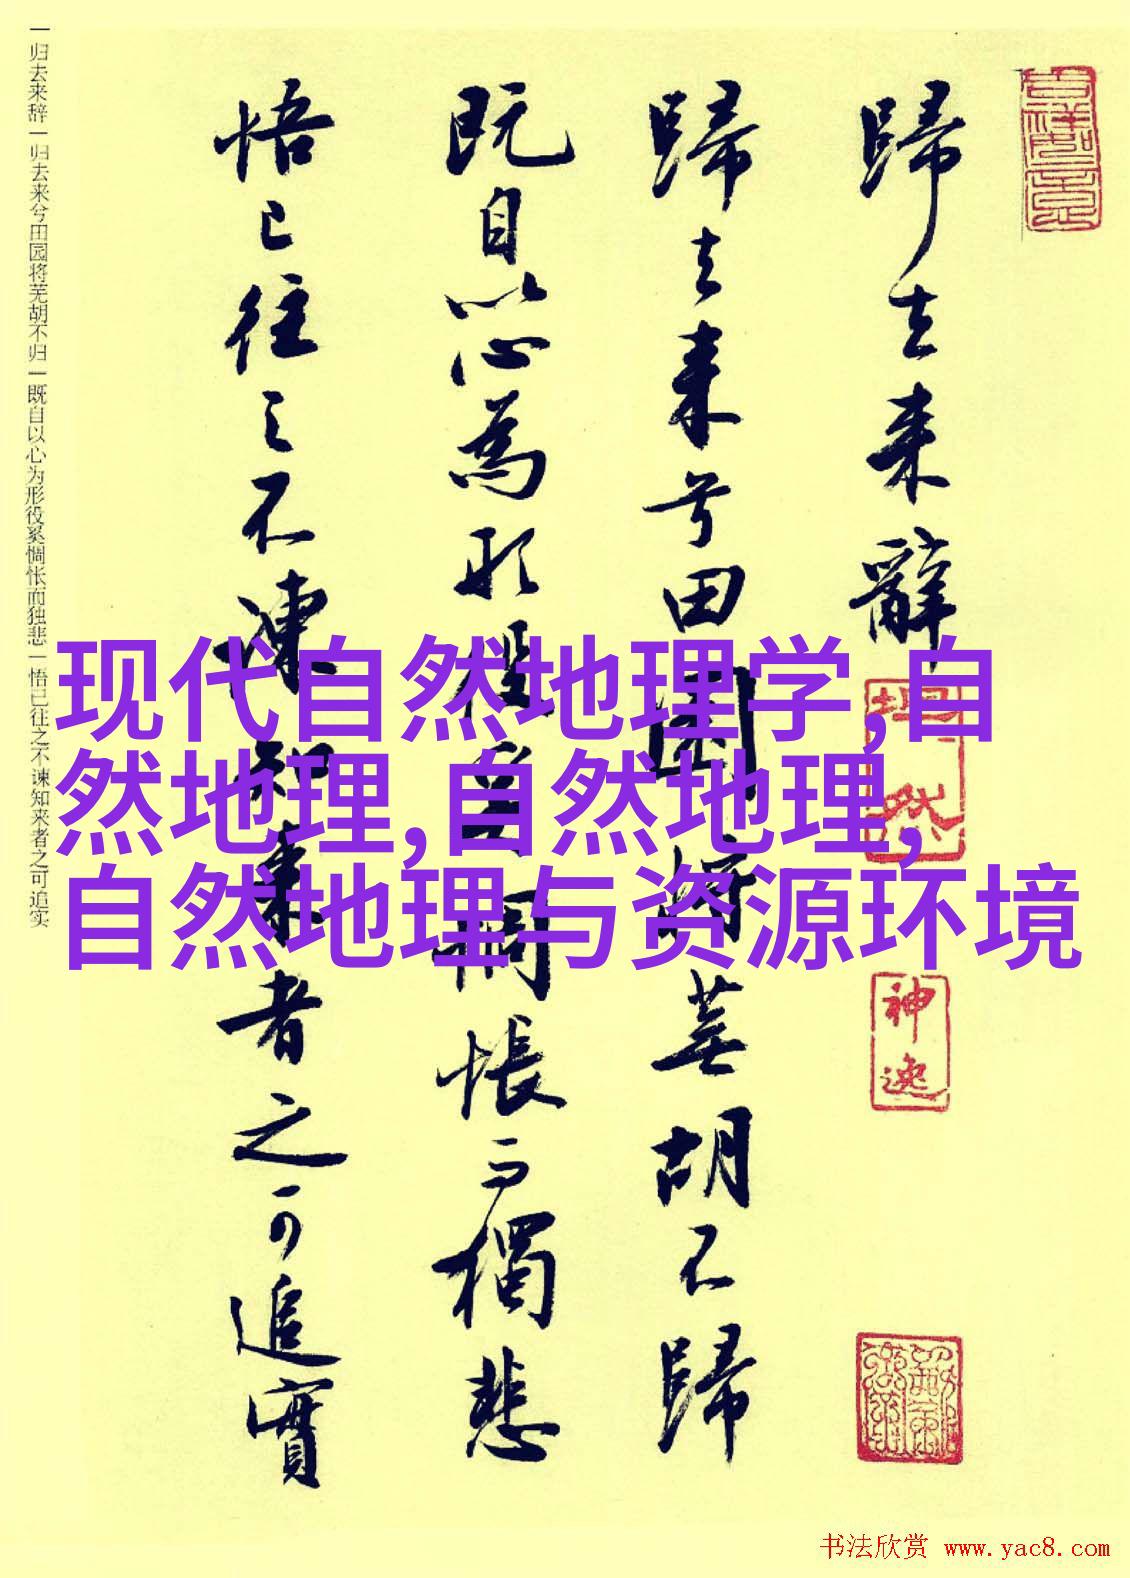 歸去来辭
歸去来兮田園将蕪胡不歸
既自以心為形役奚惆悵而獨悲
悟已往之不諫知来者之可追實
一归去来辞一归去来兮田园将芜胡不归一既自以心为形役奚惆怅而独悲一悟已往之不谏知来者之可追实
现代自然地理学,自
然地理,自然地理,
自然地理与资源环境
神逸
书法欣赏 www.yac8.com